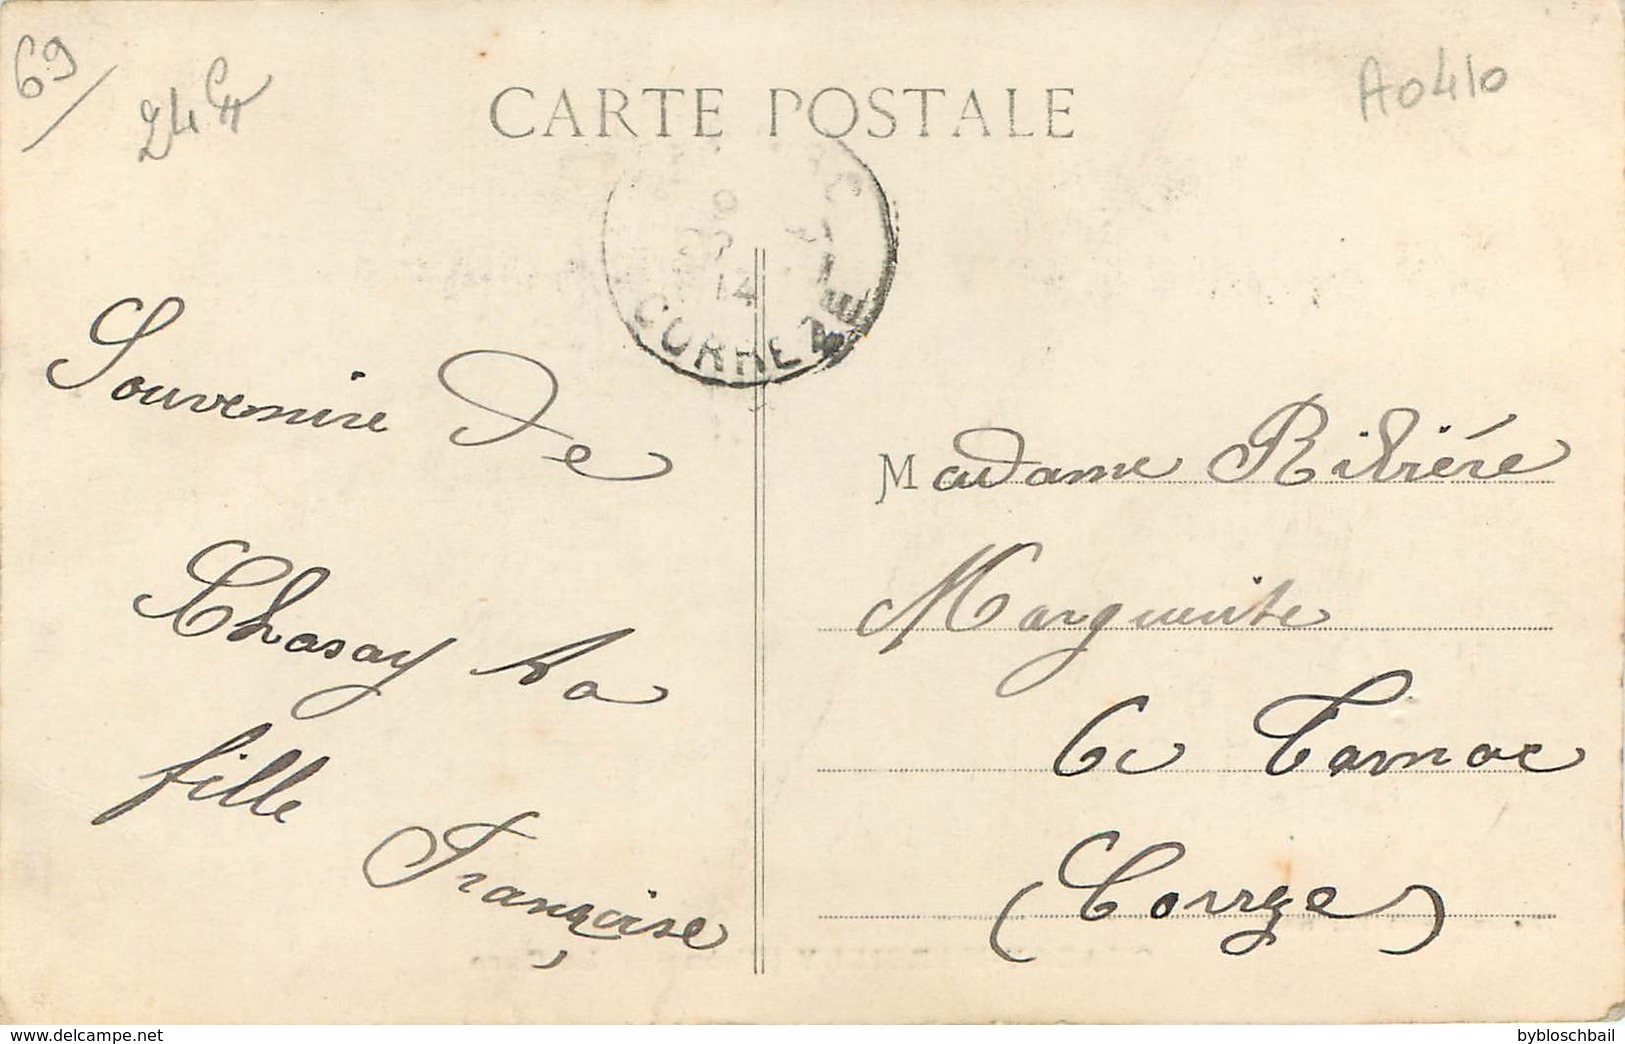 69/
A0410
CARTE POSTALE
14
CORREZE
Souvenire de
Chasay ta
fille
Françoise
Madame Ribiére
Marguerite
a Tarnac
(Correze)
http://www.delcampe.net
bybloschbail